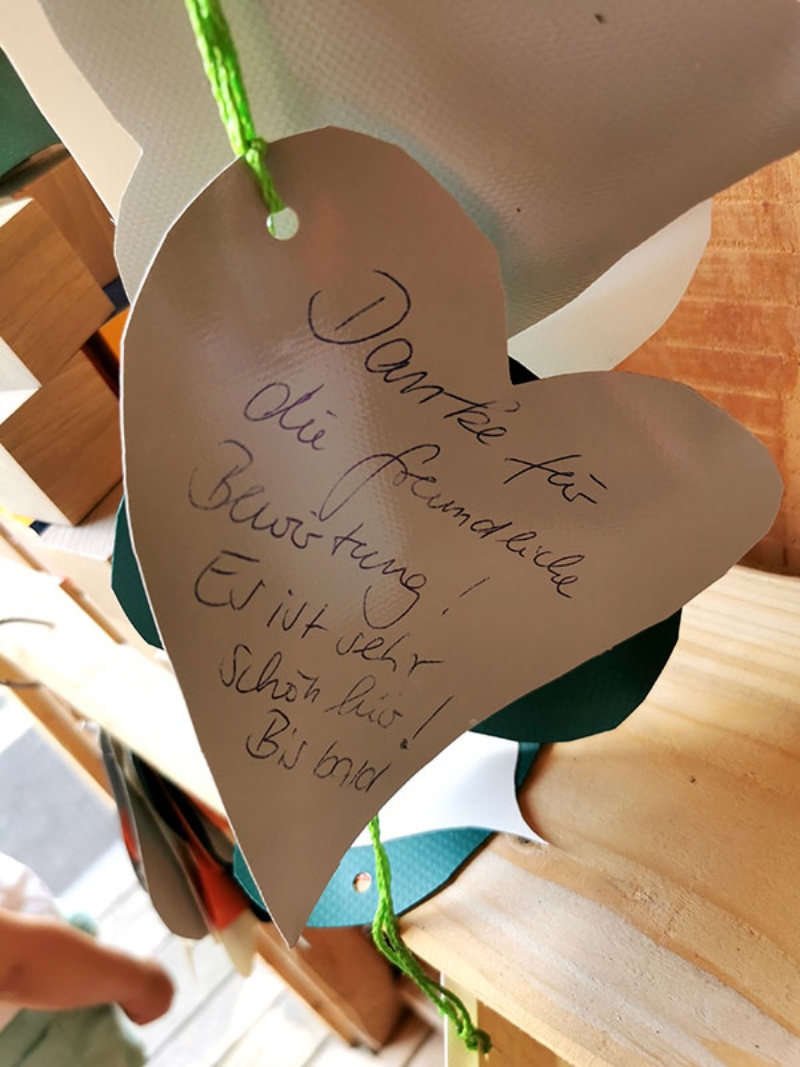 Danke für
die freundliche
Bewirtung!
Es ist sehr
schön hier!
Bis bald